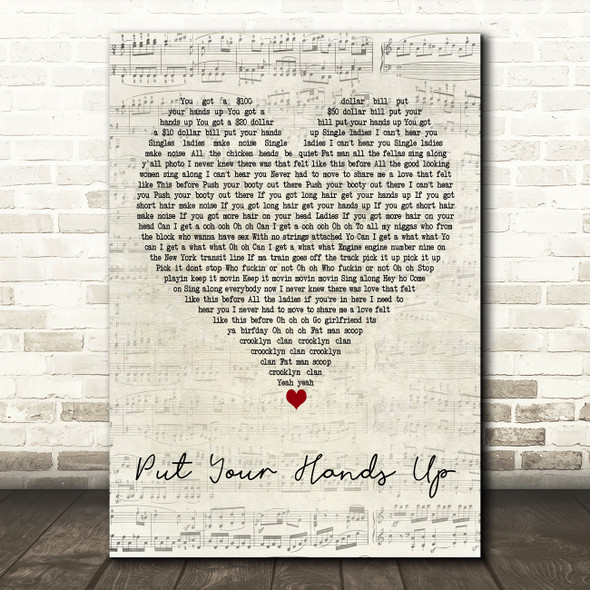 You got a $100 dollar bill put
your hands up You got a $50 dollar
hands up You got a $20 dollar bill put your hands up You got
a $10 dollar bill put your hands up Single ladies I can't hear you
Singles ladies make noise Single ladies I can't hear you Single ladies
make noise All the chicken heads be quiet Fat man all the fellas sing along
y'all photo I never knew there was that felt like this before All the good looking
women sing along I can't hear you Never had to move to share me a love that felt
like This before Push your booty out there Push your booty out there I can't hear
you Push your booty out there If you got long hair get your hands up If you got
short hair make noise If you got long hair get your hands up If you got short hair
make noise If you got more hair on your head Ladies If you got more hair on your
head Can I get a ooh ooh Oh oh Can I get a ooh ooh Oh oh To all my niggas who from
the block who wanna have sex With no strings attached Yo Can I get a what what Yo
can I get a what what Oh oh Can I get a what what Engine engine number nine on
the New York transit line If ma train goes off the track pick it up pick it up
Pick it dont stop Who fuckin or not Oh oh Who fuckin or not Oh oh Stop
playin keep it movin Keep it movin movin movin Sing along Hey ho Come
on Sing along everybody now I never knew there was love that felt
like this before All the ladies if you're in here I need to
hear you I never had to move to share me a love felt
like this before Oh oh oh Go girlfriend its
ya birfday Oh oh oh Fat man scoop
crooklyn clan crooklyn clan
croocklyn clan crooklyn
clan Fat man scoop
crooklyn clan
Yeah yeah
Put Your Hands Up